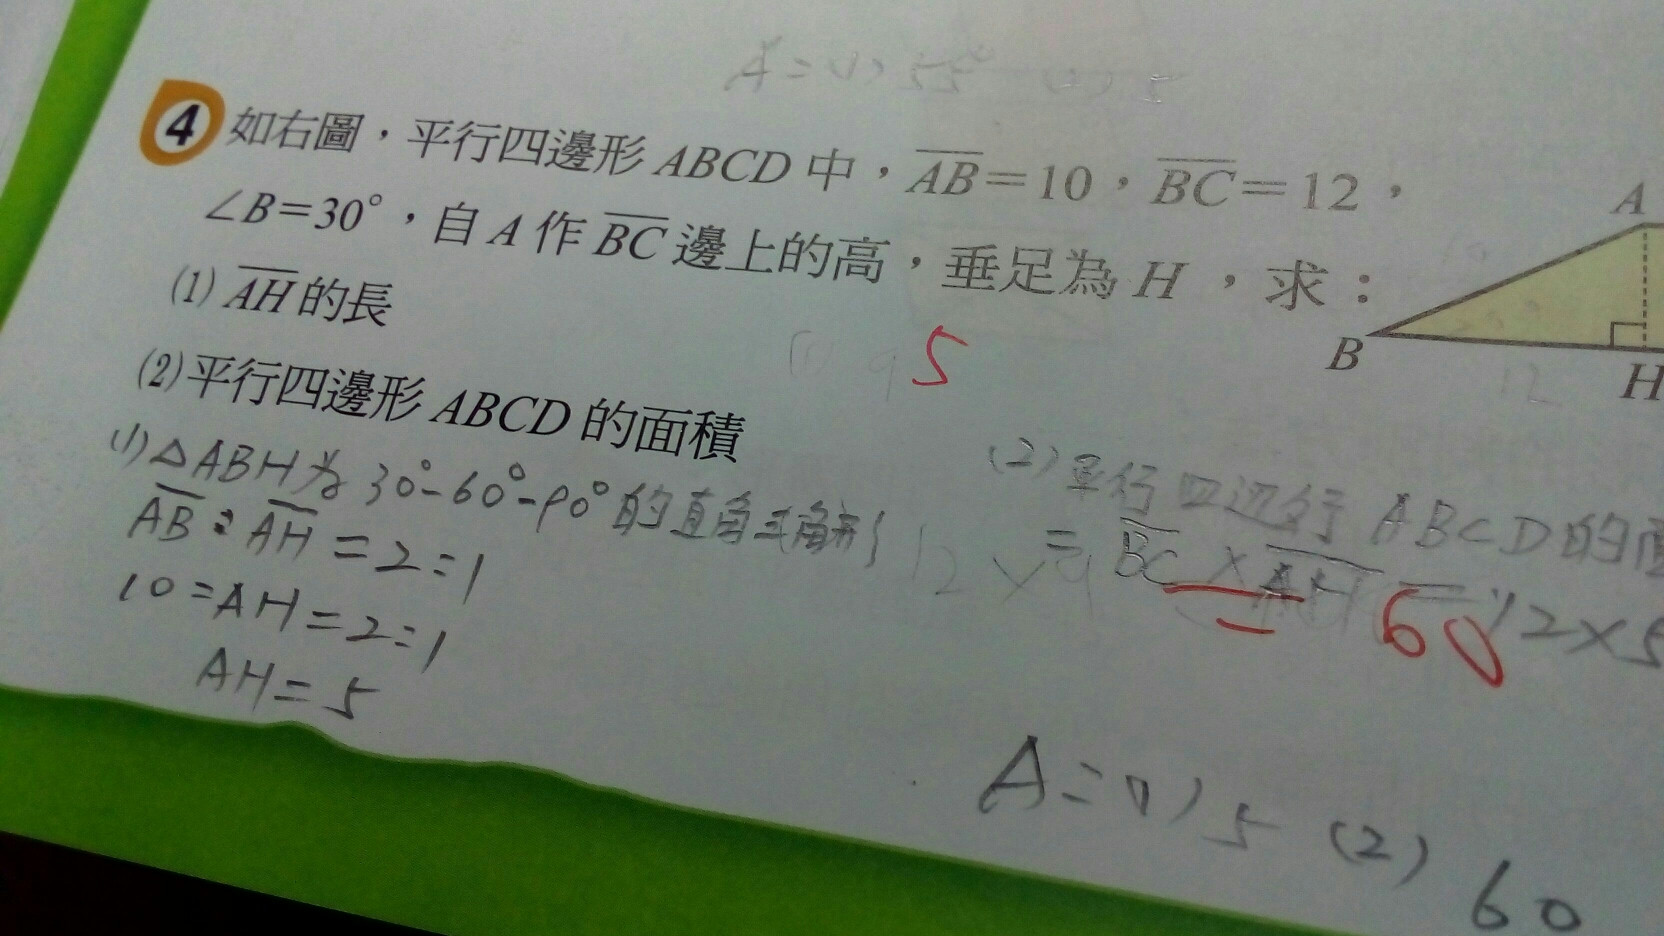 A=(1) 55° (2) 5
4 如右圖，平行四邊形 ABCD 中，AB=10，BC=12，
∠B=30°，自 A 作 BC 邊上的高，垂足為 H，求：
(1) AH 的長
(2) 平行四邊形 ABCD 的面積
A
B
H
12
5
(1) △ABH為 30°-60°-90°的直角三角形
AB:AH=2:1
10=AH=2=1
AH=5
(2) 平行四边形 ABCD的面
= BC × AH = 12×5
12×9
= 60
A=(1) 5 (2) 60